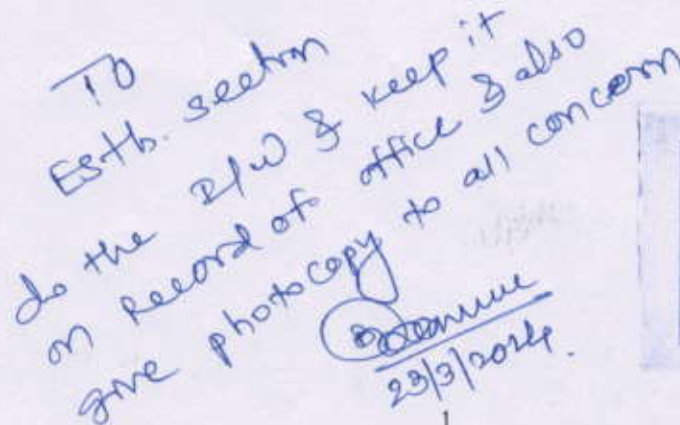 To
Estb. section
do the I/W & keep it
on Record of office & also
give photocopy to all concern
23/3/2024.
1